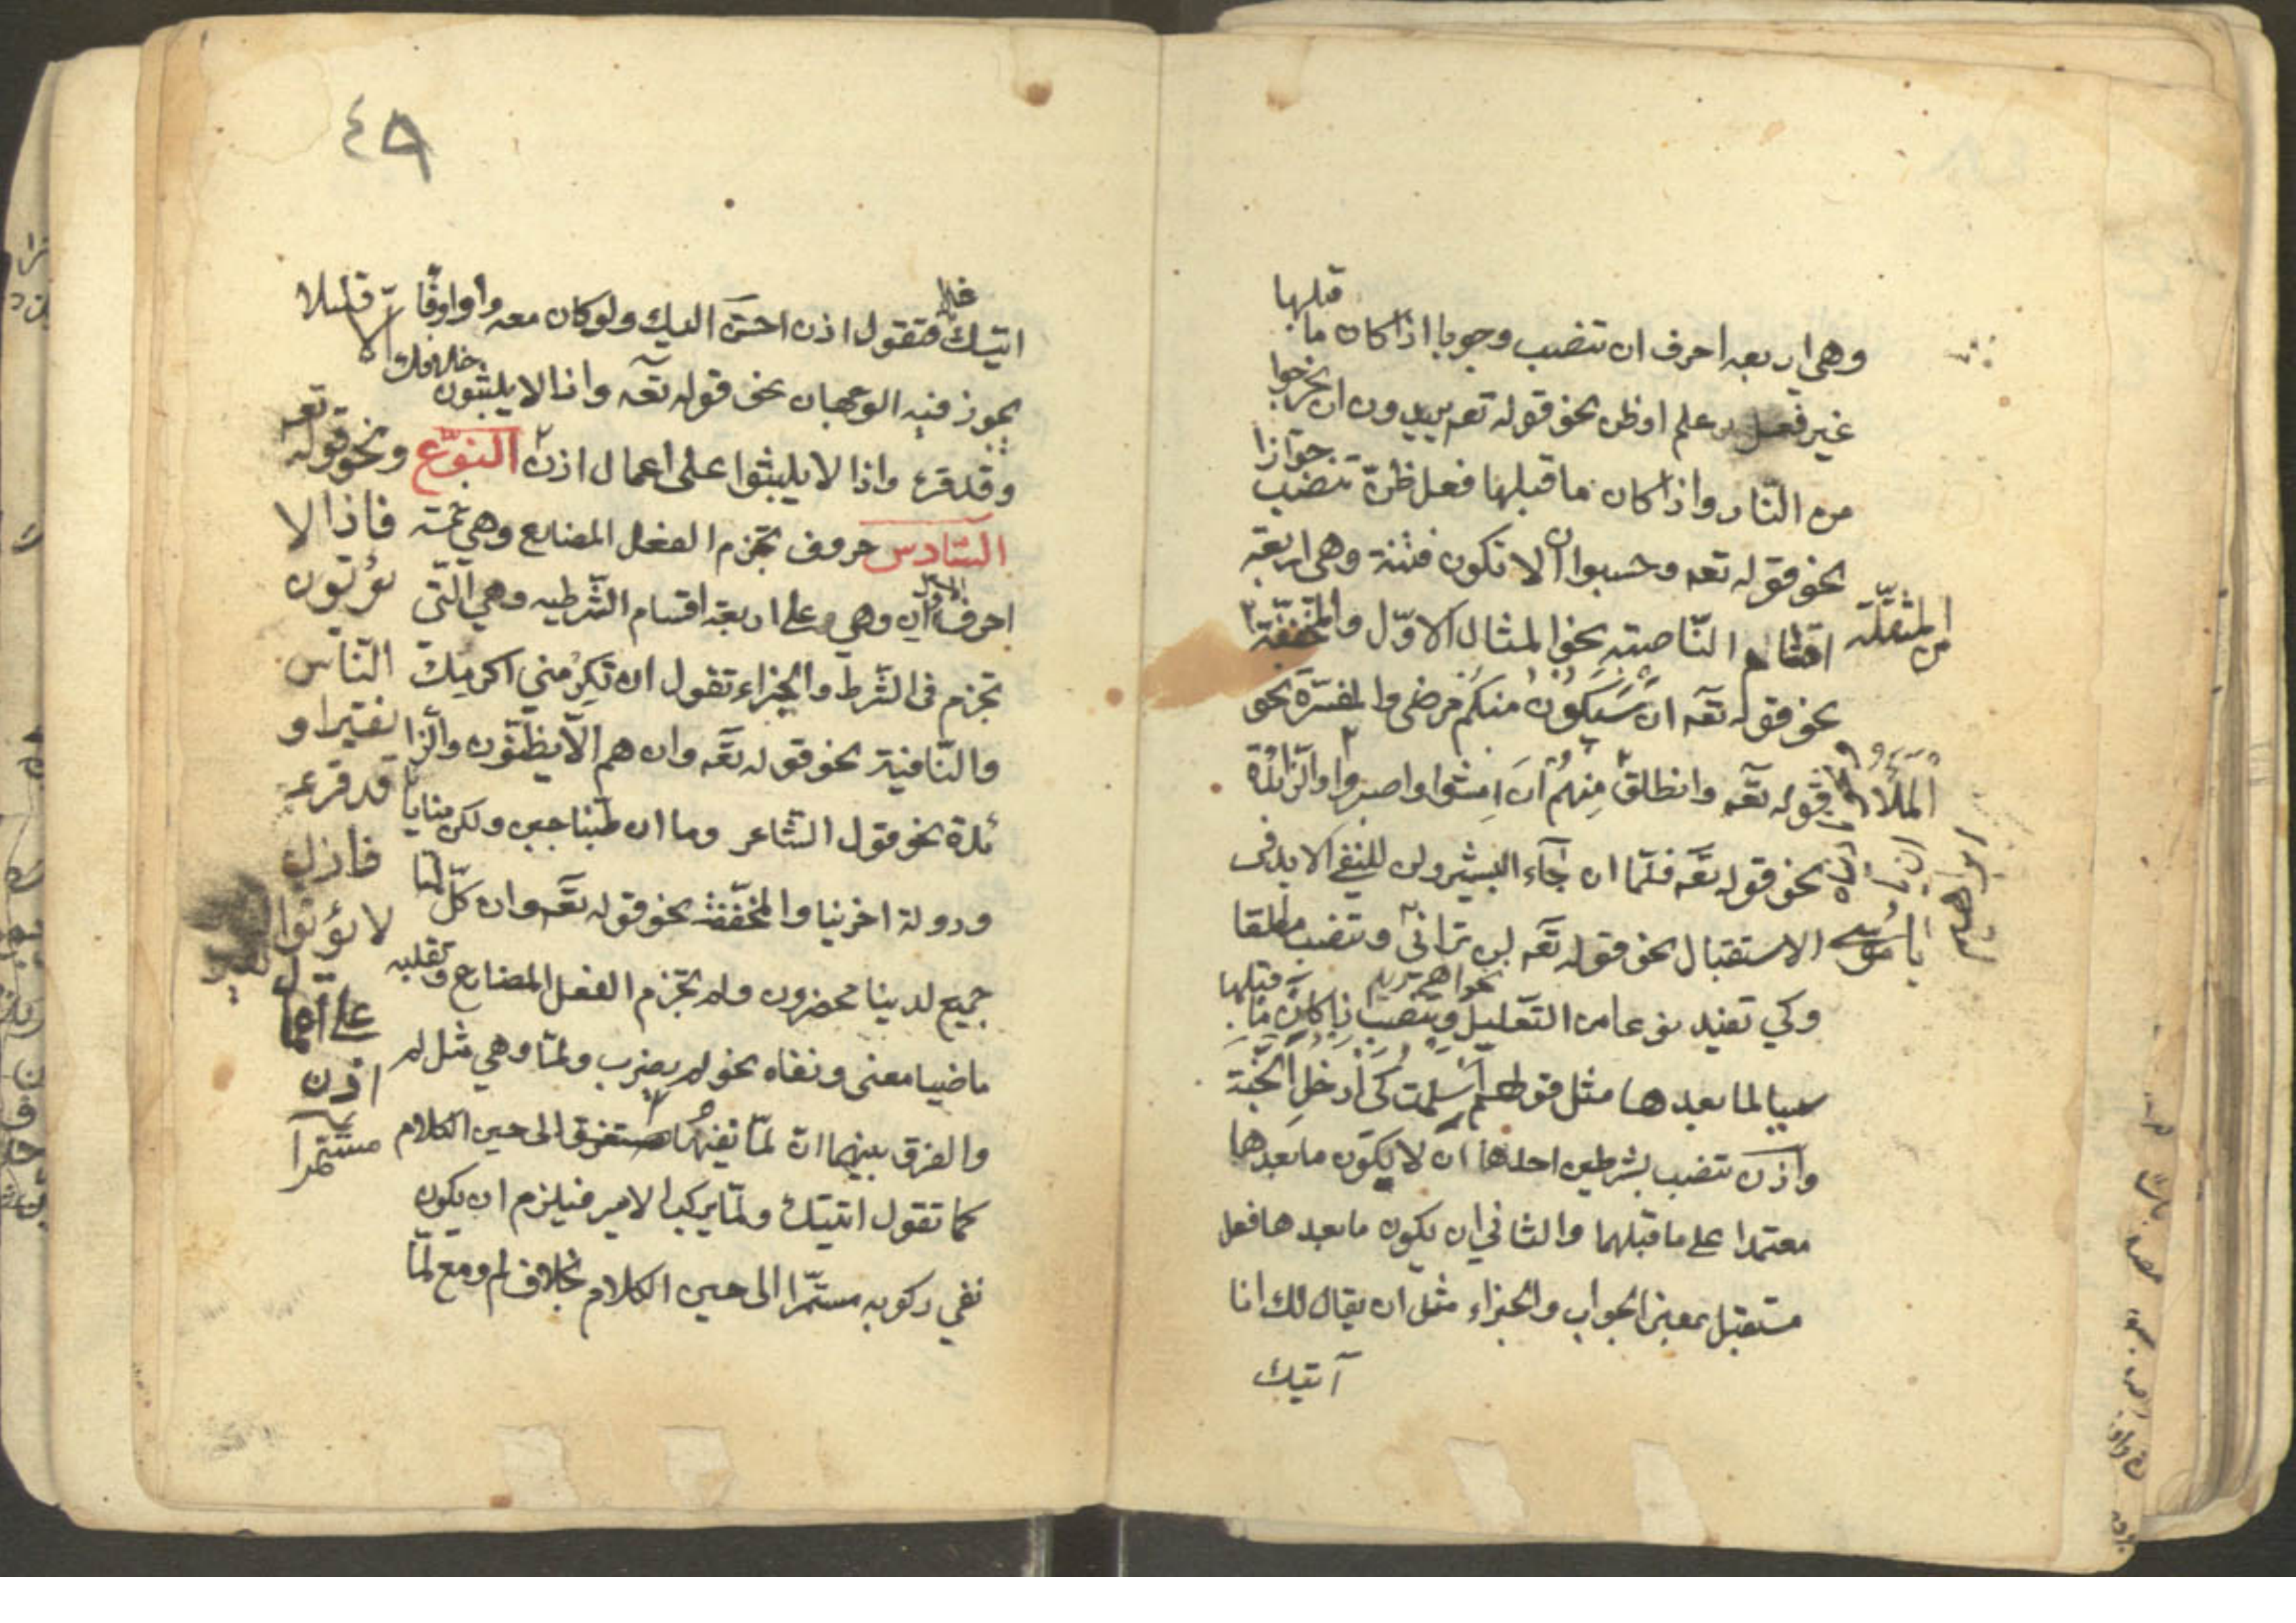 قبلها
وهى اربعه احرف ان تنصب وجوبا اذا كان ما
غير فعل علم او ظن نحو قوله تعه يريدون ان يخرجوا
من النار واذا كان ما قبلها فعل ظن تنصب جوازا
نحو قوله تعه وحسبوا ان لا تكون فتنة وهى اربعة
اقسام الناصبة نحو المثال الاول والمخففة
من المثقلة
نحو قوله تعه ان سيكون منكم مرضى والمفسرة نحو
قوله تعه وانطلق الملأ منهم ان امشوا واصبروا والزائدة
نحو قوله تعه فلما ان جاء البشير ولن للنفى الابد فى
ان يا ابراهيم
الاستقبال نحو قوله تعه لن ترانى وتنصب مطلقا
يا موسى
وكي تفيد نوعا من التعليل وتنصب اذا كان ما قبلها
سببا لما بعدها مثل قولهم اسلمت كى ادخل الجنة
واذن تنصب بشرطين احدها ان لا يكون ما بعدها
معتمدا على ما قبلهما والثانى ان يكون ما بعدها فعل
مستقبل بمعنى الجواب والجزاء مثل ان يقال لك انا
آتيك
٤٨
اتيتك فتقول اذن احسن اليك ولو كان معه واو او فا
يجوز فيه الوجهان نحو قوله تعه واذا لا يلبثون خلافك الا قليلا
وقد قرء واذا لا يلبثوا على اعمال اذن النوع
السادس حروف تجزم الفعل المضارع وهى خمسة
احرف الاول ان وهى على اربعة اقسام الشرطيه وهي التى
تجزم فى الشرط والجزاء تقول ان تكرمني اكرمك
والنافية نحو قوله تعه وان هم الا يظنون والزا
ئدة نحو قول الشاعر وما ان طبنا جبن ولكن منايا
ودولة اخرينا والمخففة نحو قوله تعه وان كل لما
جميع لدينا محضرون ولم تجزم الفعل المضارع وتقلبه
ماضيا معنى ونفاه نحو لم يضرب ولما وهي مثل لم
والفرق بينهما ان لما نفيها مستغرق الى حين الكلام
كما تقول اتيتك ولما يركب الامير فيلزم ان يكون
نفي ركوبه مستمرا الى حين الكلام بخلاف لم ومع لما
ونحو قوله تعه
فاذا لا
يؤتون
الناس
نقيرا و
قد قرء
فاذن
لا يؤتوا
على اعمال
اذن
مستمرا